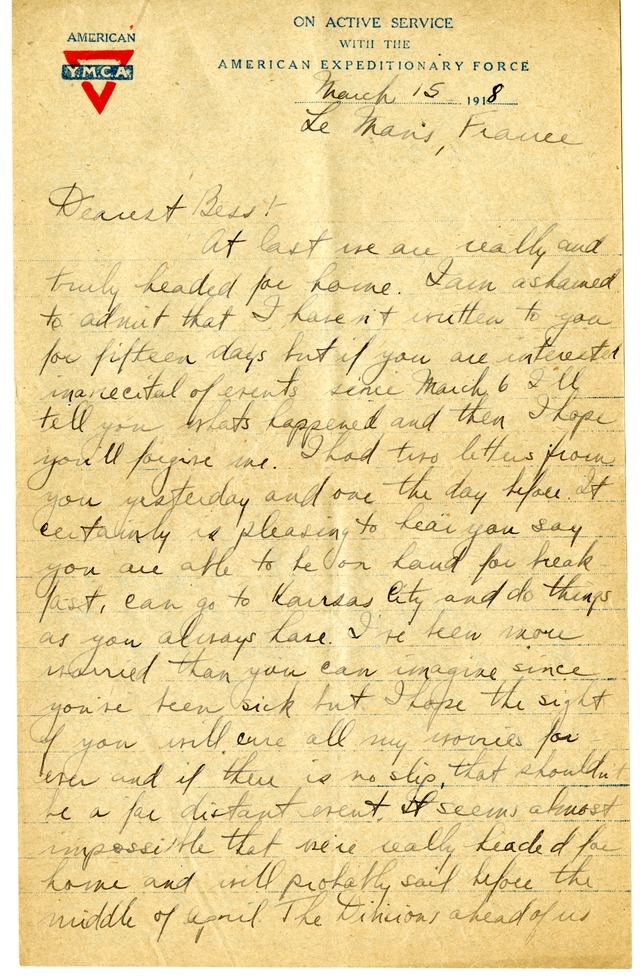 AMERICAN
Y.M.C.A.
ON ACTIVE SERVICE
WITH THE
AMERICAN EXPEDITIONARY FORCE
March 15 1918
Le Mans, France
Dearest Bess:
At last we are really and
truly headed for home. I am ashamed
to admit that I haven't written to you
for fifteen days but if you are interested
in a recital of events since March 6 I'll
tell you whats happened and then I hope
you'll forgive me. I had two letters from
you yesterday and one the day before. It
certainly is pleasing to hear you say
you are able to be on hand for break
fast, can go to Kansas City and do things
as you always have. I've been more
worried than you can imagine since
you've been sick but I hope the sight
of you will cure all my worries for
ever and if there is no slip, that shouldn't
be a far distant event. It seems almost
impossible that we're really headed for
home and will probably sail before the
middle of April The Divisions ahead of us